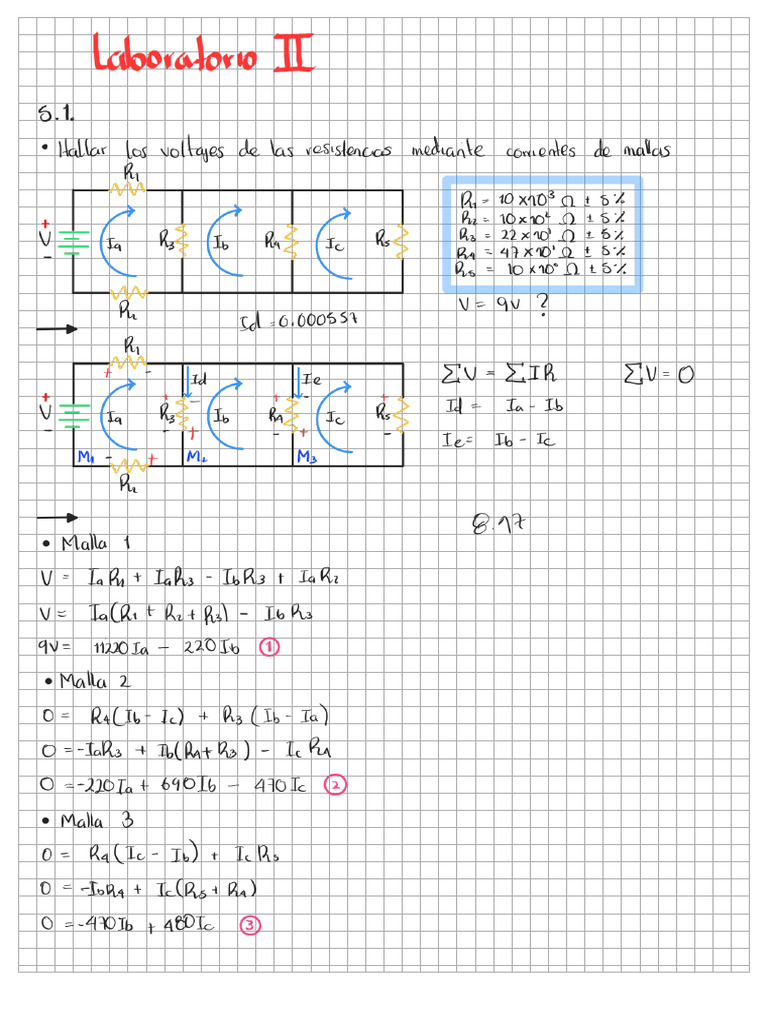 Laboratorio II
5.1.
• Hallar los voltajes de las resistencias mediante corrientes de mallas
R1
V + - Ia R3 Ib R4 Ic R5
R2
R1 = 10 x 10³ Ω ± 5%
R2 = 10 x 10² Ω ± 5%
R3 = 22 x 10¹ Ω ± 5%
R4 = 47 x 10¹ Ω ± 5%
R5 = 10 x 10⁰ Ω ± 5%
V = 9V ?
Id = 0.000557
R1
+ - Id Ie
V + - Ia R3 + - Ib R4 + - Ic R5 + -
M1 - + M2 + M3
R2
ΣV = ΣIR ΣV = 0
Id = Ia - Ib
Ie = Ib - Ic
8.17
• Malla 1
V = IaR1 + IaR3 - IbR3 + IaR2
V = Ia(R1 + R2 + R3) - IbR3
9V = 11220Ia - 220Ib ①
• Malla 2
0 = R4(Ib - Ic) + R3(Ib - Ia)
0 = -IaR3 + Ib(R4 + R3) - IcR4
0 = -220Ia + 690Ib - 470Ic ②
• Malla 3
0 = R4(Ic - Ib) + IcR5
0 = -IbR4 + Ic(R5 + R4)
0 = -470Ib + 480Ic ③